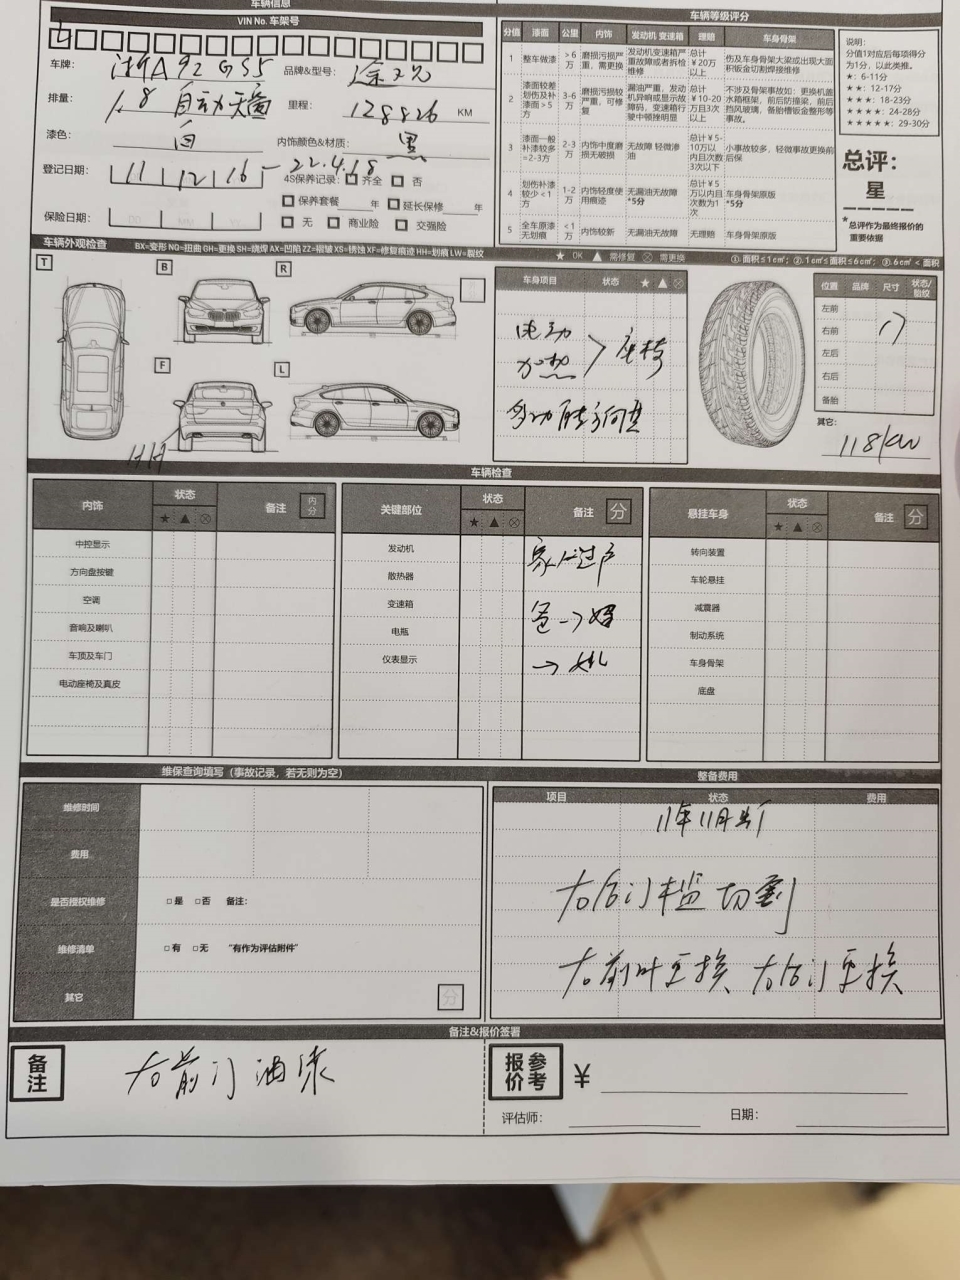 车辆信息
VIN No. 车架号
车牌: 浙A92GS5 品牌&型号: 途观
排量: 1.8 自动天窗 里程: 128826 KM
漆色: 白 内饰颜色&材质: 黑
登记日期: 11 12 16 - 22.4.18
4S保养记录: 齐全 否
保养套餐 年 延长保修 年
保险日期: DD MM YY 无 商业险 交强险
车辆等级评分
分值 漆面 公里 内饰 发动机 变速箱 理赔 车身骨架
1 整车做漆 >6万 磨损污损严重,需更换 发动机变速箱严重故障或者拆检维修 总计¥20万以上 伤及车身骨架大梁或出现大面积钣金切割焊接维修
2 漆面较差划伤及补漆面>5 3-6万 磨损污损较严重,可修复 漏油严重,发动机异响或显示故障码,变速箱行驶中顿挫明显 总计¥10-20万目3次以上 不涉及骨架事故如:更换机盖水箱框架,前后防撞梁,前后挡风玻璃,备胎槽钣金整形等事故。
3 漆面一般补漆较多=2-3方 2-3万 内饰中度磨损无破损 无故障 轻微渗油 总计¥5-10万以内目次数3次以下 小事故较多,轻微事故更换前后保
4 划伤补漆较少<1方 1-2万 内饰轻度使用痕迹 无漏油无故障 *5分 总计¥5万以内目次数为1次 车身骨架原版 *5分
5 全车原漆无划痕 <1万 内饰较新 无漏油无故障 无理赔 车身骨架原版
说明:
分值1对应后每项得分为1分,以此类推。
★: 6-11分
★★: 12-17分
★★★: 18-23分
★★★★: 24-28分
★★★★★: 29-30分
总评:
星
*总评作为最终报价的重要依据
车辆外观检查 BX=变形 NQ=扭曲 GH=更换 SH=烧焊 AX=凹陷 ZZ=褶皱 XS=锈蚀 XF=修复痕迹 HH=划痕 LW=裂纹 ★ OK ▲ 需修复 ⊗ 需更换 ①. 面积≤1c㎡; ②. 1c㎡≤面积≤6c㎡; ③. 6c㎡<面积
T B R
F L
HH
车身项目 状态 ★ ▲ ⊗
电动
加热 > 座椅
多功能方向盘
位置 品牌 尺寸 状态/胎纹
左前
右前 17
左后
右后
备胎
其它:
118kw
车辆检查
内饰 状态 ★ ▲ ⊗ 备注 内分
中控显示
方向盘按键
空调
音响及喇叭
车顶及车门
电动座椅及真皮
关键部位 状态 ★ ▲ ⊗ 备注 分
发动机 家人过户
散热器
变速箱 爸→妈
电瓶
仪表显示 →女儿
悬挂车身 状态 ★ ▲ ⊗ 备注 分
转向装置
车轮悬挂
减震器
制动系统
车身骨架
底盘
维保查询填写(事故记录,若无则为空)
维修时间
费用
是否授权维修 □是 □否 备注:
维修清单 □有 □无 "有作为评估附件"
其它 分
整备费用
项目 状态 费用
11年11月出厂
右后门槛切割
右前叶更换 右后门更换
备注&报价签署
备注 右前门油漆
报价参考 ¥
评估师: 日期: